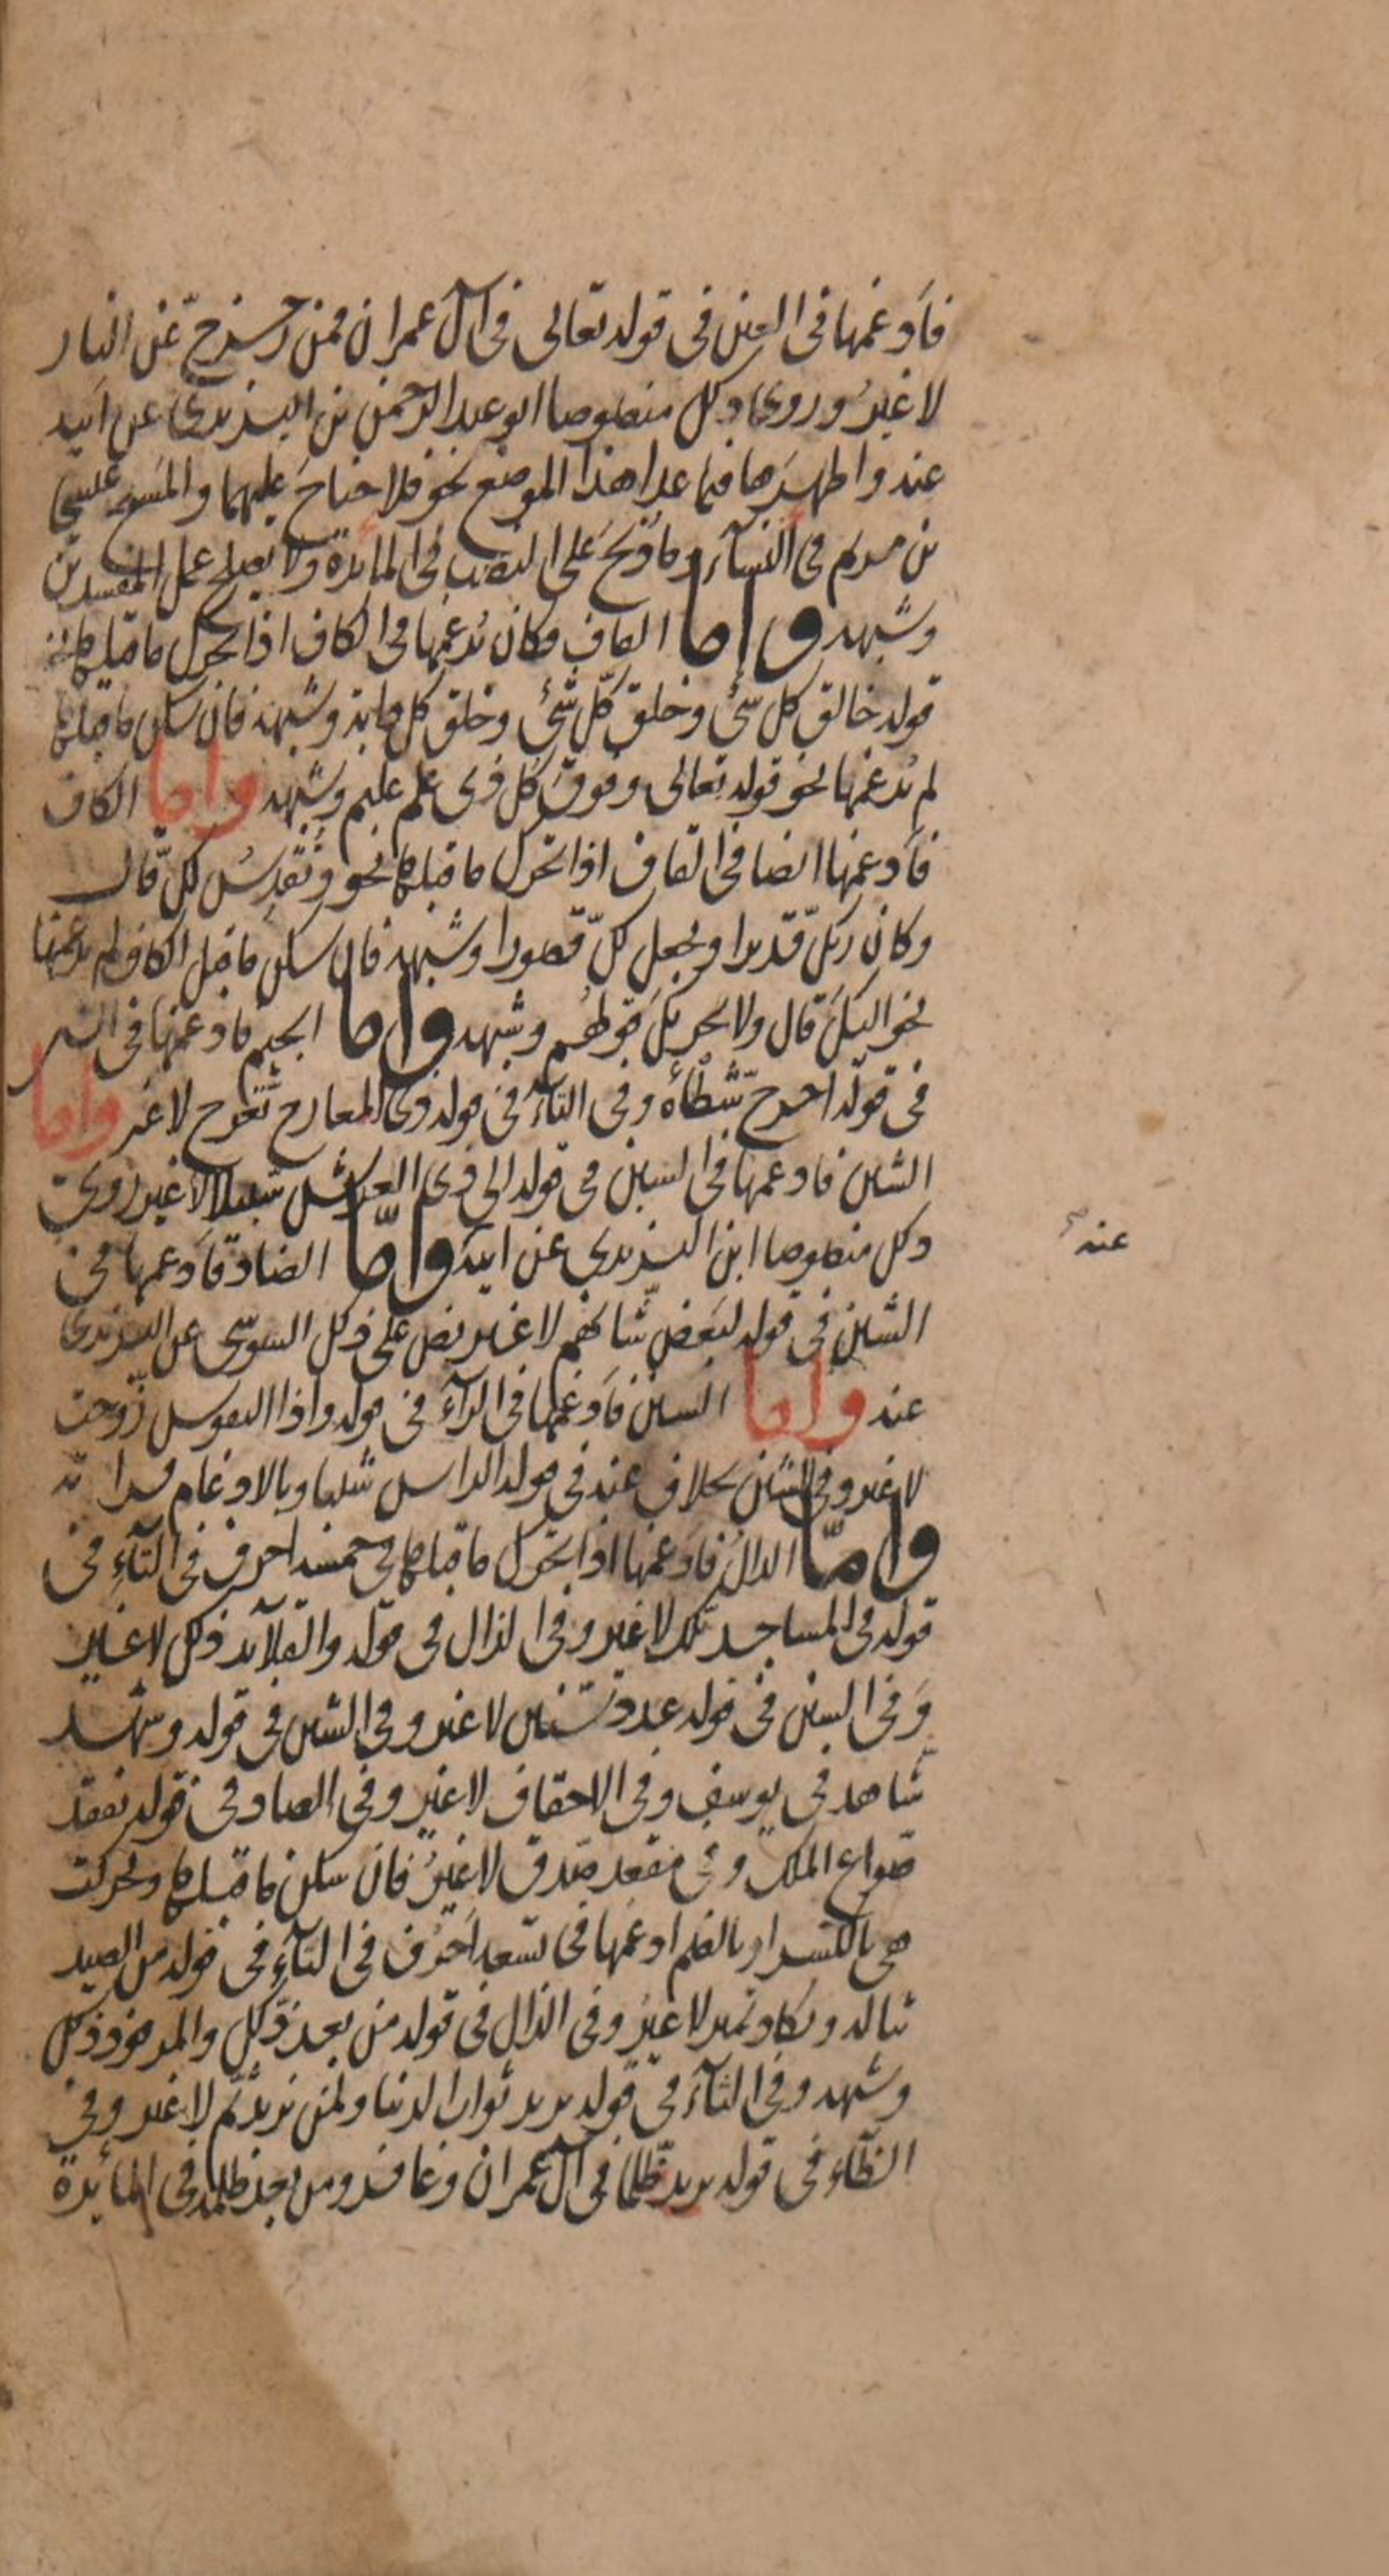 فأدغمها في العين في قوله تعالى في آل عمران فمن زحزح عن النار
لا غير وروى ذلك منصوصا ابو عبد الرحمن بن اليزيدي عن ابيه
عنه واظهرها فيما عدا هذا الموضع نحو فلا جناح عليهما والمسيح عيسى
بن مريم في النسآء وما ذبح على النصب في المائدة ولا يصلح عمل المفسدين
وشبهه واما القاف فكان يدغمها في الكاف اذا تحرك ما قبلها
قوله خالق كل شئ وخلق كل شئ وخلق كل دابة وشبهه فان سكن ما قبلها
لم يدغمها نحو قوله تعالى وفوق كل ذي علم عليم وشبهه واما الكاف
فأدغمها ايضا في القاف اذا تحرك ما قبلها نحو ونقدس لك قال
وكان ربك قديرا ويجعل لك قصورا وشبهه فان سكن ما قبل الكاف لم يدغمها
نحو اليك قال ولا يحزنك قولهم وشبهه واما الجيم فادغمها في الشين
في قوله اخرج شطأه وفي التآء في قوله ذي المعارج تعرج لا غير واما
الشين فادغمها في السين في قوله الى ذي العرش سبيلا لا غير روى
ذلك منصوصا ابن اليزيدي عن ابيه واما الضاد فأدغمها في
عنه
الشين في قوله لبعض شأنهم لا غير نص على ذلك السوسى عن اليزيدى
عنه واما السين فأدغمها في الزآء في قوله واذا النفوس زوجت
لا غير وفي الشين بخلاف عنه في قوله الراس شيبا وبالادغام قرا ته
واما الدال فأدغمها اذا تحرك ما قبلها في خمسة احرف في التآء في
قوله في المساجد تلك لا غير وفي الذال في قوله والقلآئد ذلك لا غير
وفي السين في قوله عدد سنين لا غير وفي الشين في قوله وشهد
شاهد في يوسف وفي الاحقاف لا غير وفي الصاد في قوله نفقد
صواع الملك وفي مقعد صدق لا غير فان سكن ما قبلها وتحركت
هي بالكسر او بالضم ادغمها في تسعة احرف في التآء في قوله من الصيد
تناله وتكاد تميز لا غير وفي الذال في قوله من بعد ذلك والمرفود ذلك
وشبهه وفي الثآء في قوله يريد ثواب الدنيا ولمن نريد ثم لا غير وفي
الظآء في قوله يريد ظلما في آل عمران وغافر ومن بعد ظلمه في المائدة